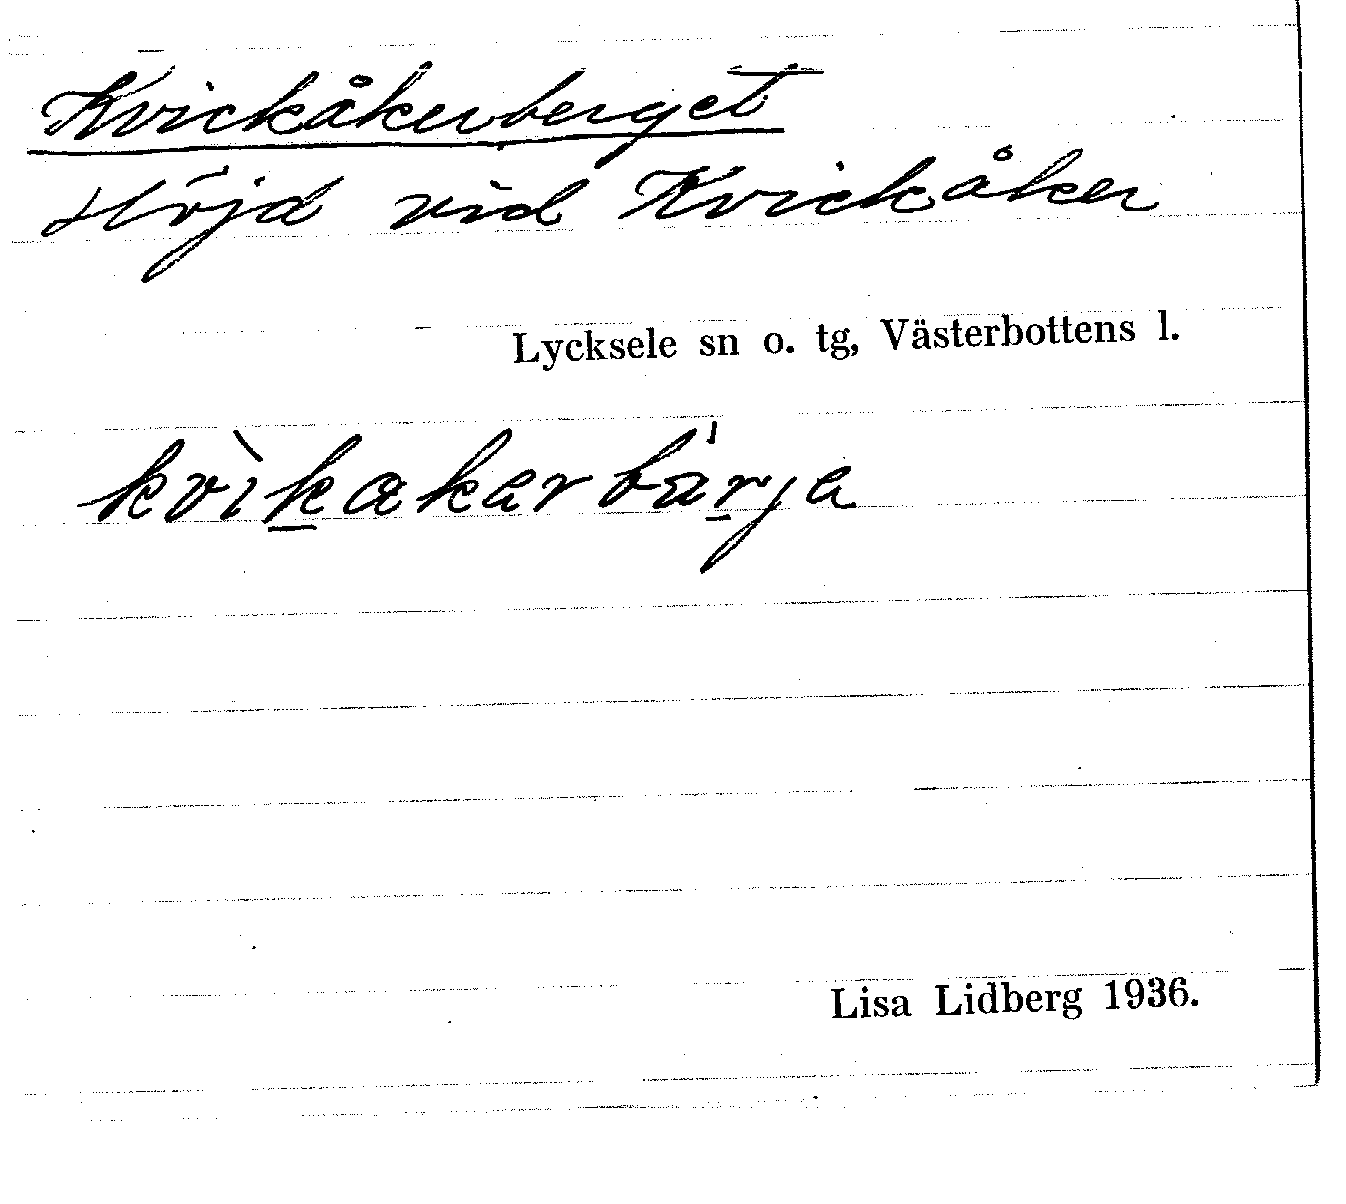 Kvickåkerberget
Höjd vid Kvickåker
Lycksele sn o. tg, Västerbottens l.
kvìkakarbárja
Lisa Lidberg 1936.